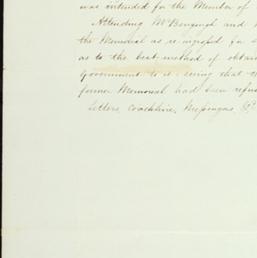 was intended for the Member of
Attending Mr Bengough and
the Memorial as re-ingrossed for
as to the best method of obtain
Government to it seeing that
former Memorial had been refus
Letters, Coachhire, Messengers &c